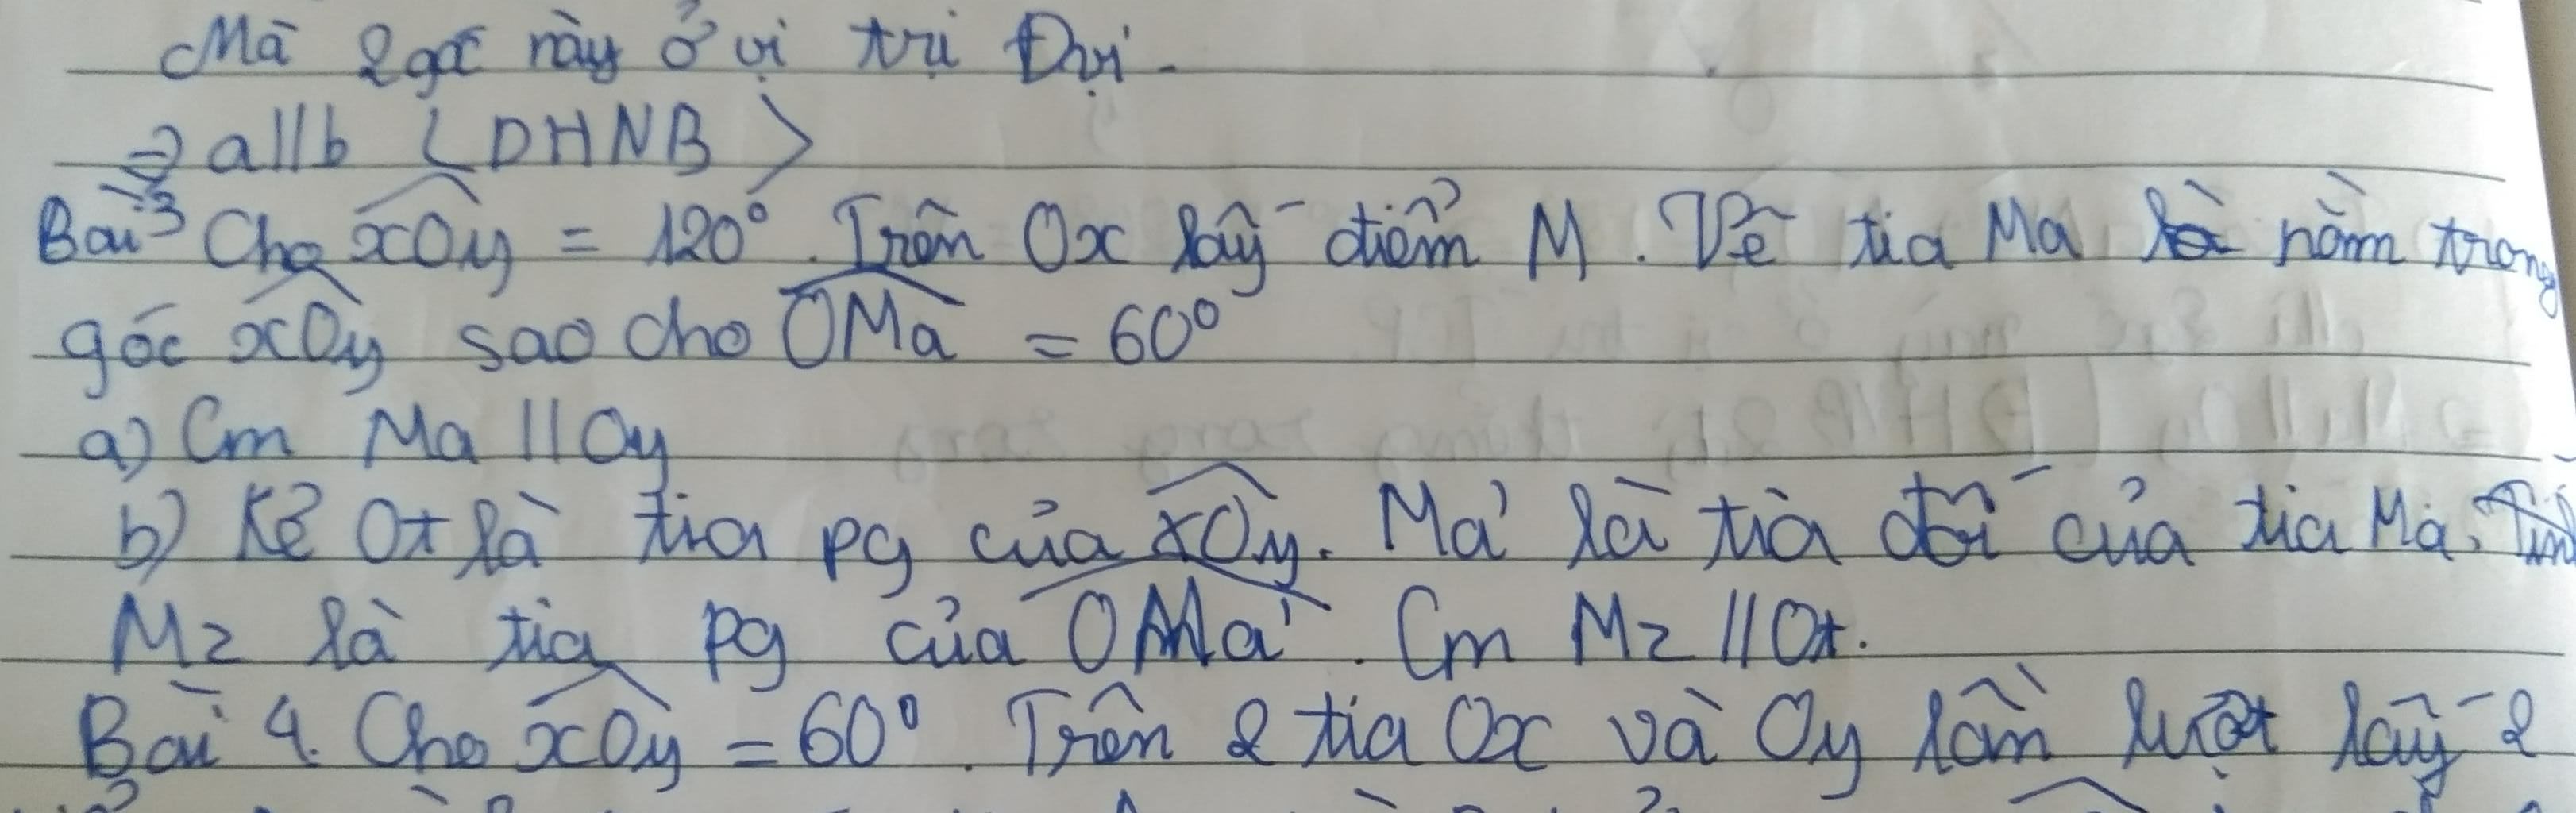 Mà 2 góc này ở vị trí Đvị.
⇒ a//b (DHNB)
Bài 3 Cho xOy = 120°. Trên Ox lấy điểm M. Vẽ tia Ma nằm trong
góc xOy sao cho OMa = 60°
a) Cm Ma // Oy
b) Kẻ Ot là tia pg của xOy. Ma' là tia đối của tia Ma.
Mz là tia pg của OMa'. Cm Mz // Ot.
Bài 4. Cho xOy = 60°. Trên 2 tia Ox và Oy lần lượt lấy 2